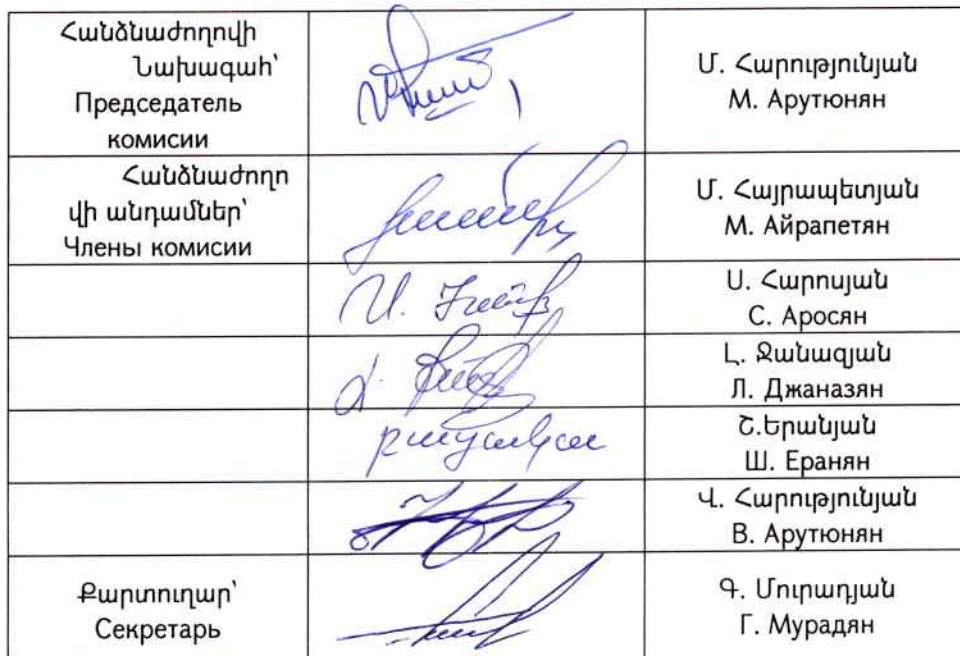 Հանձնաժողովի
Նախագահ՝
Председатель
комисии
Մ. Հարությունյան
М. Арутюнян
Հանձնաժողո
վի անդամներ՝
Члены комисии
Մ. Հայրապետյան
М. Айрапетян
Ս. Հարոսյան
С. Аросян
Լ. Ջանազյան
Л. Джаназян
Շ.Երանյան
Ш. Еранян
Վ. Հարությունյան
В. Арутюнян
Քարտուղար՝
Секретарь
Գ. Մուրադյան
Г. Мурадян